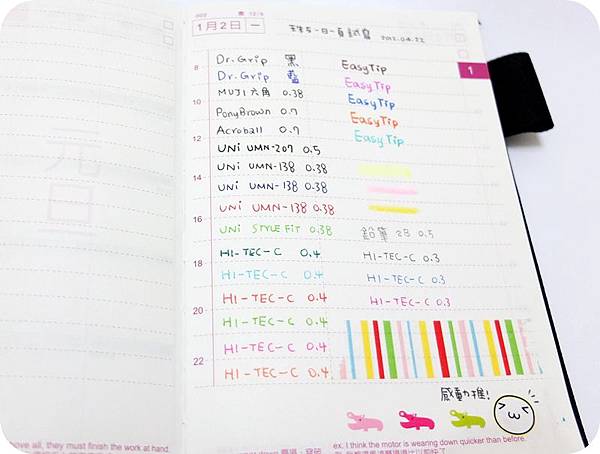 002
1月2日 一
2012.04.22
1
8
Dr.Grip 黑
EasyTip
Dr.Grip 藍
EasyTip
MUJI 六角 0.38
EasyTip
10
PonyBrown 0.7
EasyTip
Acroball 0.7
EasyTip
12
UNi UMN-207 0.5
UNi UMN-138 0.38
14
UNi UMN-138 0.38
UNi UMN-138 0.38
16
UNi STYLE FIT 0.38
鉛筆 2B 0.5
HI-TEC-C 0.4
HI-TEC-C 0.3
18
HI-TEC-C 0.4
HI-TEC-C 0.3
HI-TEC-C 0.4
HI-TEC-C 0.3
20
HI-TEC-C 0.4
HI-TEC-C 0.4
22
HI-TEC-C 0.4
感動推!
元旦
ove all, they must finish the work at hand.
ex. I think the motor is wearing down quicker than before.